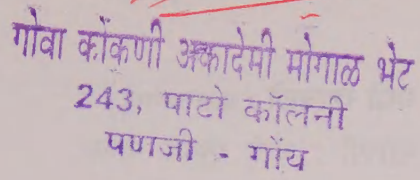 गोवा कोंकणी अकादेमी मोगाळ भेट
243, पाटो कॉलनी
पणजी - गोंय